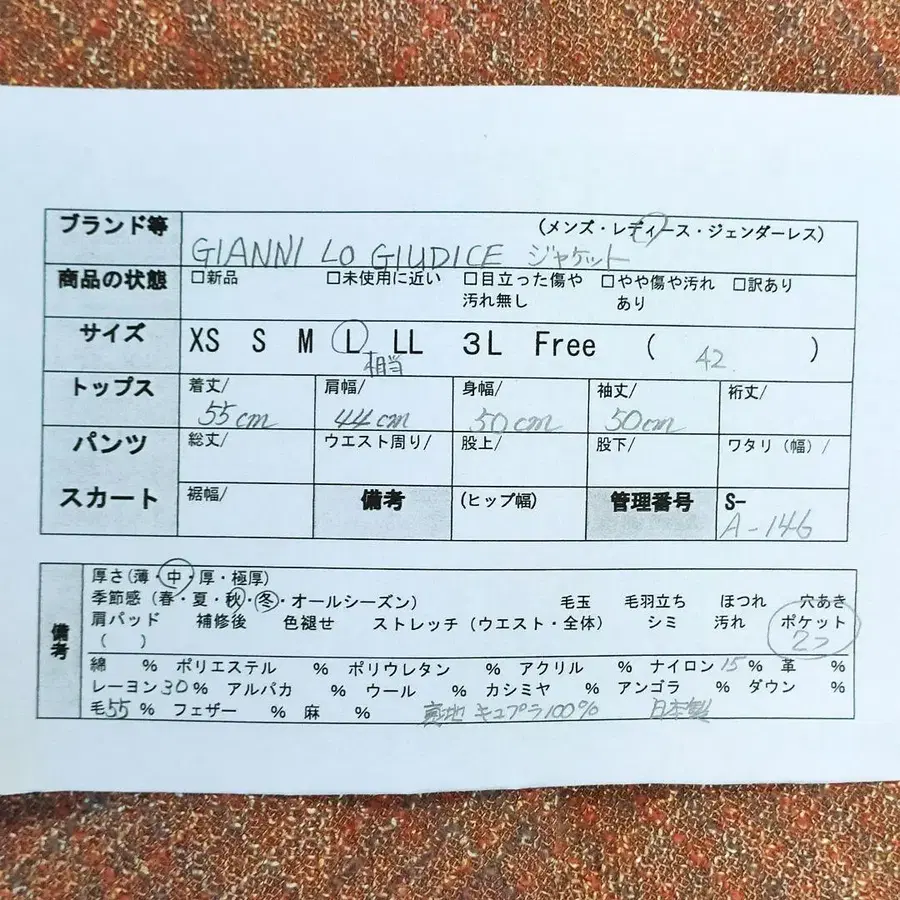 ブランド等 (メンズ・レディース・ジェンダーレス)
GIANNI LO GIUDICE ジャケット
商品の状態 □新品 □未使用に近い □目立った傷や汚れ無し □やや傷や汚れあり □訳あり
サイズ XS S M L LL 3L Free ( 42 )
相当
トップス 着丈/ 肩幅/ 身幅/ 袖丈/ 裄丈/
55cm 44cm 50cm 50cm
パンツ 総丈/ ウエスト周り/ 股上/ 股下/ ワタリ（幅）/
スカート 裾幅/ 備考 (ヒップ幅) 管理番号 S-
A-146
備考
厚さ(薄・中・厚・極厚)
季節感（春・夏・秋・冬・オールシーズン） 毛玉 毛羽立ち ほつれ 穴あき
肩パッド 補修後 色褪せ ストレッチ（ウエスト・全体） シミ 汚れ ポケット
（ ） 2つ
綿 % ポリエステル % ポリウレタン % アクリル % ナイロン15% 革 %
レーヨン30% アルパカ % ウール % カシミヤ % アンゴラ % ダウン %
毛55 % フェザー % 麻 % 裏地 キュプラ100% 日本製